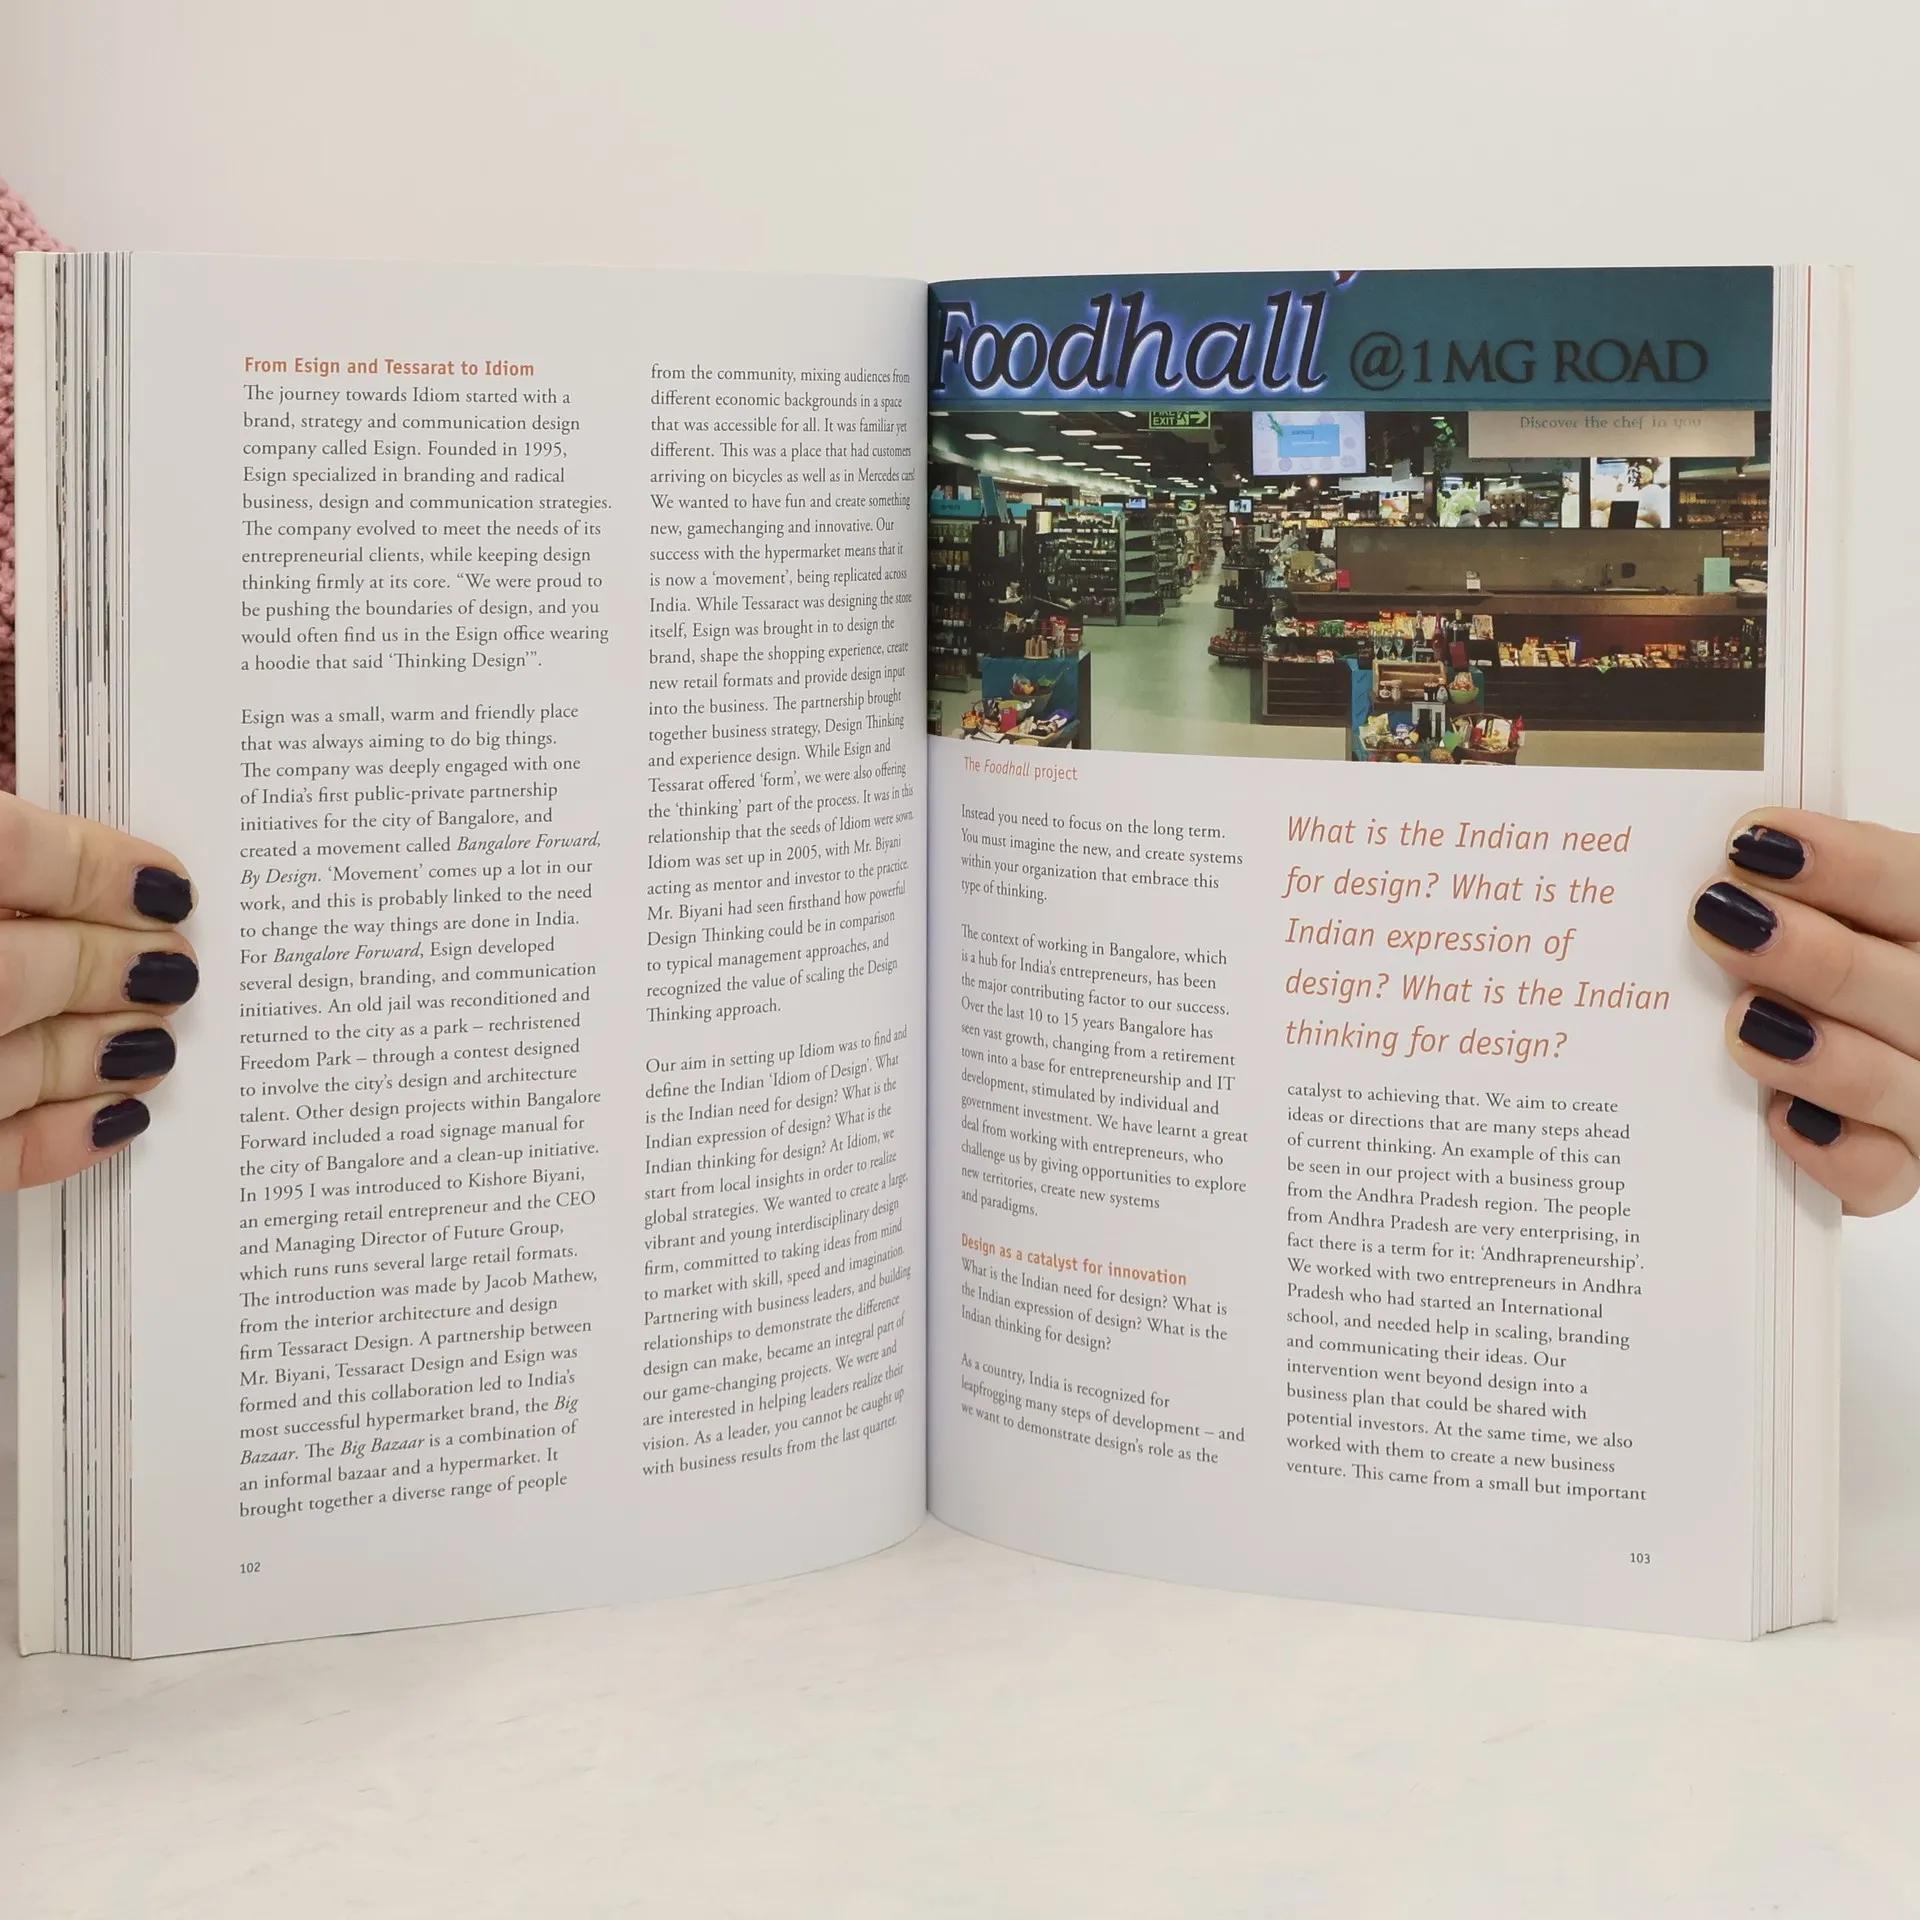 From Esign and Tessarat to Idiom
The journey towards Idiom started with a
brand, strategy and communication design
company called Esign. Founded in 1995,
Esign specialized in branding and radical
business, design and communication strategies.
The company evolved to meet the needs of its
entrepreneurial clients, while keeping design
thinking firmly at its core. “We were proud to
be pushing the boundaries of design, and you
would often find us in the Esign office wearing
a hoodie that said ‘Thinking Design’”.
Esign was a small, warm and friendly place
that was always aiming to do big things.
The company was deeply engaged with one
of India’s first public-private partnership
initiatives for the city of Bangalore, and
created a movement called Bangalore Forward,
By Design. ‘Movement’ comes up a lot in our
work, and this is probably linked to the need
to change the way things are done in India.
For Bangalore Forward, Esign developed
several design, branding, and communication
initiatives. An old jail was reconditioned and
returned to the city as a park – rechristened
Freedom Park – through a contest designed
to involve the city’s design and architecture
talent. Other design projects within Bangalore
Forward included a road signage manual for
the city of Bangalore and a clean-up initiative.
In 1995 I was introduced to Kishore Biyani,
an emerging retail entrepreneur and the CEO
and Managing Director of Future Group,
which runs runs several large retail formats.
The introduction was made by Jacob Mathew,
from the interior architecture and design
firm Tessaract Design. A partnership between
Mr. Biyani, Tessaract Design and Esign was
formed and this collaboration led to India’s
most successful hypermarket brand, the Big
Bazaar. The Big Bazaar is a combination of
an informal bazaar and a hypermarket. It
brought together a diverse range of people
102
from the community, mixing audiences from
different economic backgrounds in a space
that was accessible for all. It was familiar yet
different. This was a place that had customers
arriving on bicycles as well as in Mercedes cars!
We wanted to have fun and create something
new, gamechanging and innovative. Our
success with the hypermarket means that it
is now a ‘movement’, being replicated across
India. While Tessaract was designing the store
itself, Esign was brought in to design the
brand, shape the shopping experience, create
new retail formats and provide design input
into the business. The partnership brought
together business strategy, Design Thinking
and experience design. While Esign and
Tessarat offered ‘form’, we were also offering
the ‘thinking’ part of the process. It was in this
relationship that the seeds of Idiom were sown.
Idiom was set up in 2005, with Mr. Biyani
acting as mentor and investor to the practice.
Mr. Biyani had seen firsthand how powerful
Design Thinking could be in comparison
to typical management approaches, and
recognized the value of scaling the Design
Thinking approach.
Our aim in setting up Idiom was to find and
define the Indian ‘Idiom of Design’. What
is the Indian need for design? What is the
Indian expression of design? What is the
Indian thinking for design? At Idiom, we
start from local insights in order to realize
global strategies. We wanted to create a large,
vibrant and young interdisciplinary design
firm, committed to taking ideas from mind
to market with skill, speed and imagination.
Partnering with business leaders, and building
relationships to demonstrate the difference
design can make, became an integral part of
our game-changing projects. We were and
are interested in helping leaders realize their
vision. As a leader, you cannot be caught up
with business results from the last quarter.
Foodhall @1 MG ROAD
EXIT
Discover the chef in you
The Foodhall project
Instead you need to focus on the long term.
You must imagine the new, and create systems
within your organization that embrace this
type of thinking.
The context of working in Bangalore, which
is a hub for India’s entrepreneurs, has been
the major contributing factor to our success.
Over the last 10 to 15 years Bangalore has
seen vast growth, changing from a retirement
town into a base for entrepreneurship and IT
development, stimulated by individual and
government investment. We have learnt a great
deal from working with entrepreneurs, who
challenge us by giving opportunities to explore
new territories, create new systems
and paradigms.
Design as a catalyst for innovation
What is the Indian need for design? What is
the Indian expression of design? What is the
Indian thinking for design?
As a country, India is recognized for
leapfrogging many steps of development – and
we want to demonstrate design’s role as the
What is the Indian need
for design? What is the
Indian expression of
design? What is the Indian
thinking for design?
catalyst to achieving that. We aim to create
ideas or directions that are many steps ahead
of current thinking. An example of this can
be seen in our project with a business group
from the Andhra Pradesh region. The people
from Andhra Pradesh are very enterprising, in
fact there is a term for it: ‘Andhrapreneurship’.
We worked with two entrepreneurs in Andhra
Pradesh who had started an International
school, and needed help in scaling, branding
and communicating their ideas. Our
intervention went beyond design into a
business plan that could be shared with
potential investors. At the same time, we also
worked with them to create a new business
venture. This came from a small but important
103